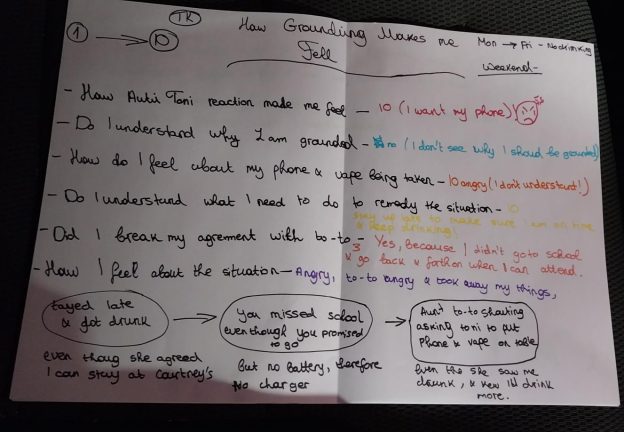 1 → 10
TK
How Grounding Makes me
Fell
Mon → Fri - No drinking
Weekend-
- How Auti Toni reaction made me feel — 10 (I want my phone)
- Do I understand why I am grounded - no (I don't see why I should be grounded)
- How do I feel about my phone & vape being taken - 10 angry (I don't understand!)
- Do I understand what I need to do to remedy the situation - 10
stay up late to make sure I am on time
& keep drinking!
- Did I break my agreement with to-to - Yes, Because I didn't go to school
3 & go back & forth on when I can attend.
- How I feel about the situation — Angry, to-to angry & took away my things,
tayed late
& got drunk
→
You missed school
even though you promised
to go
→
Aunt to-to shouting
asking toni to put
Phone & vape on table
even thoug she agreed
I can stay at Courtney's
But no battery, therefore
No charger
Even tho she saw me
drunk, & knew I'd drink
more.